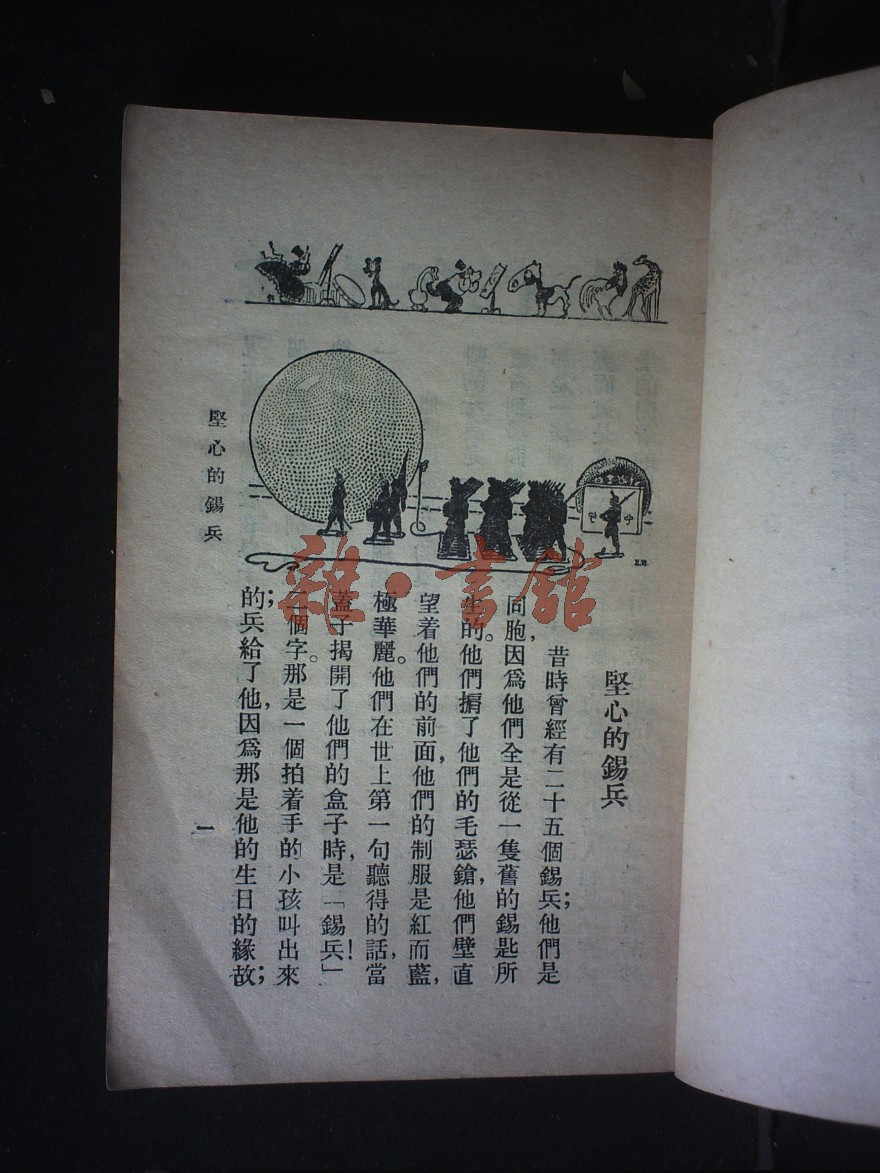 堅心的錫兵
昔時曾經有二十五個錫兵；他們是
同胞，因爲他們全是從一隻舊的錫匙所
生的。他們揹了他們的毛瑟鎗，他們壁直
望着他們的前面，他們的制服是紅而藍，
極華麗。他們在世上第一句聽得的話，當
蓋子揭開了他們的盒子時，是「錫兵！」
二個字。那是一個拍着手的小孩叫出來
的；兵給了他，因爲那是他的生日的緣故；
堅心的錫兵
一
雜·書館